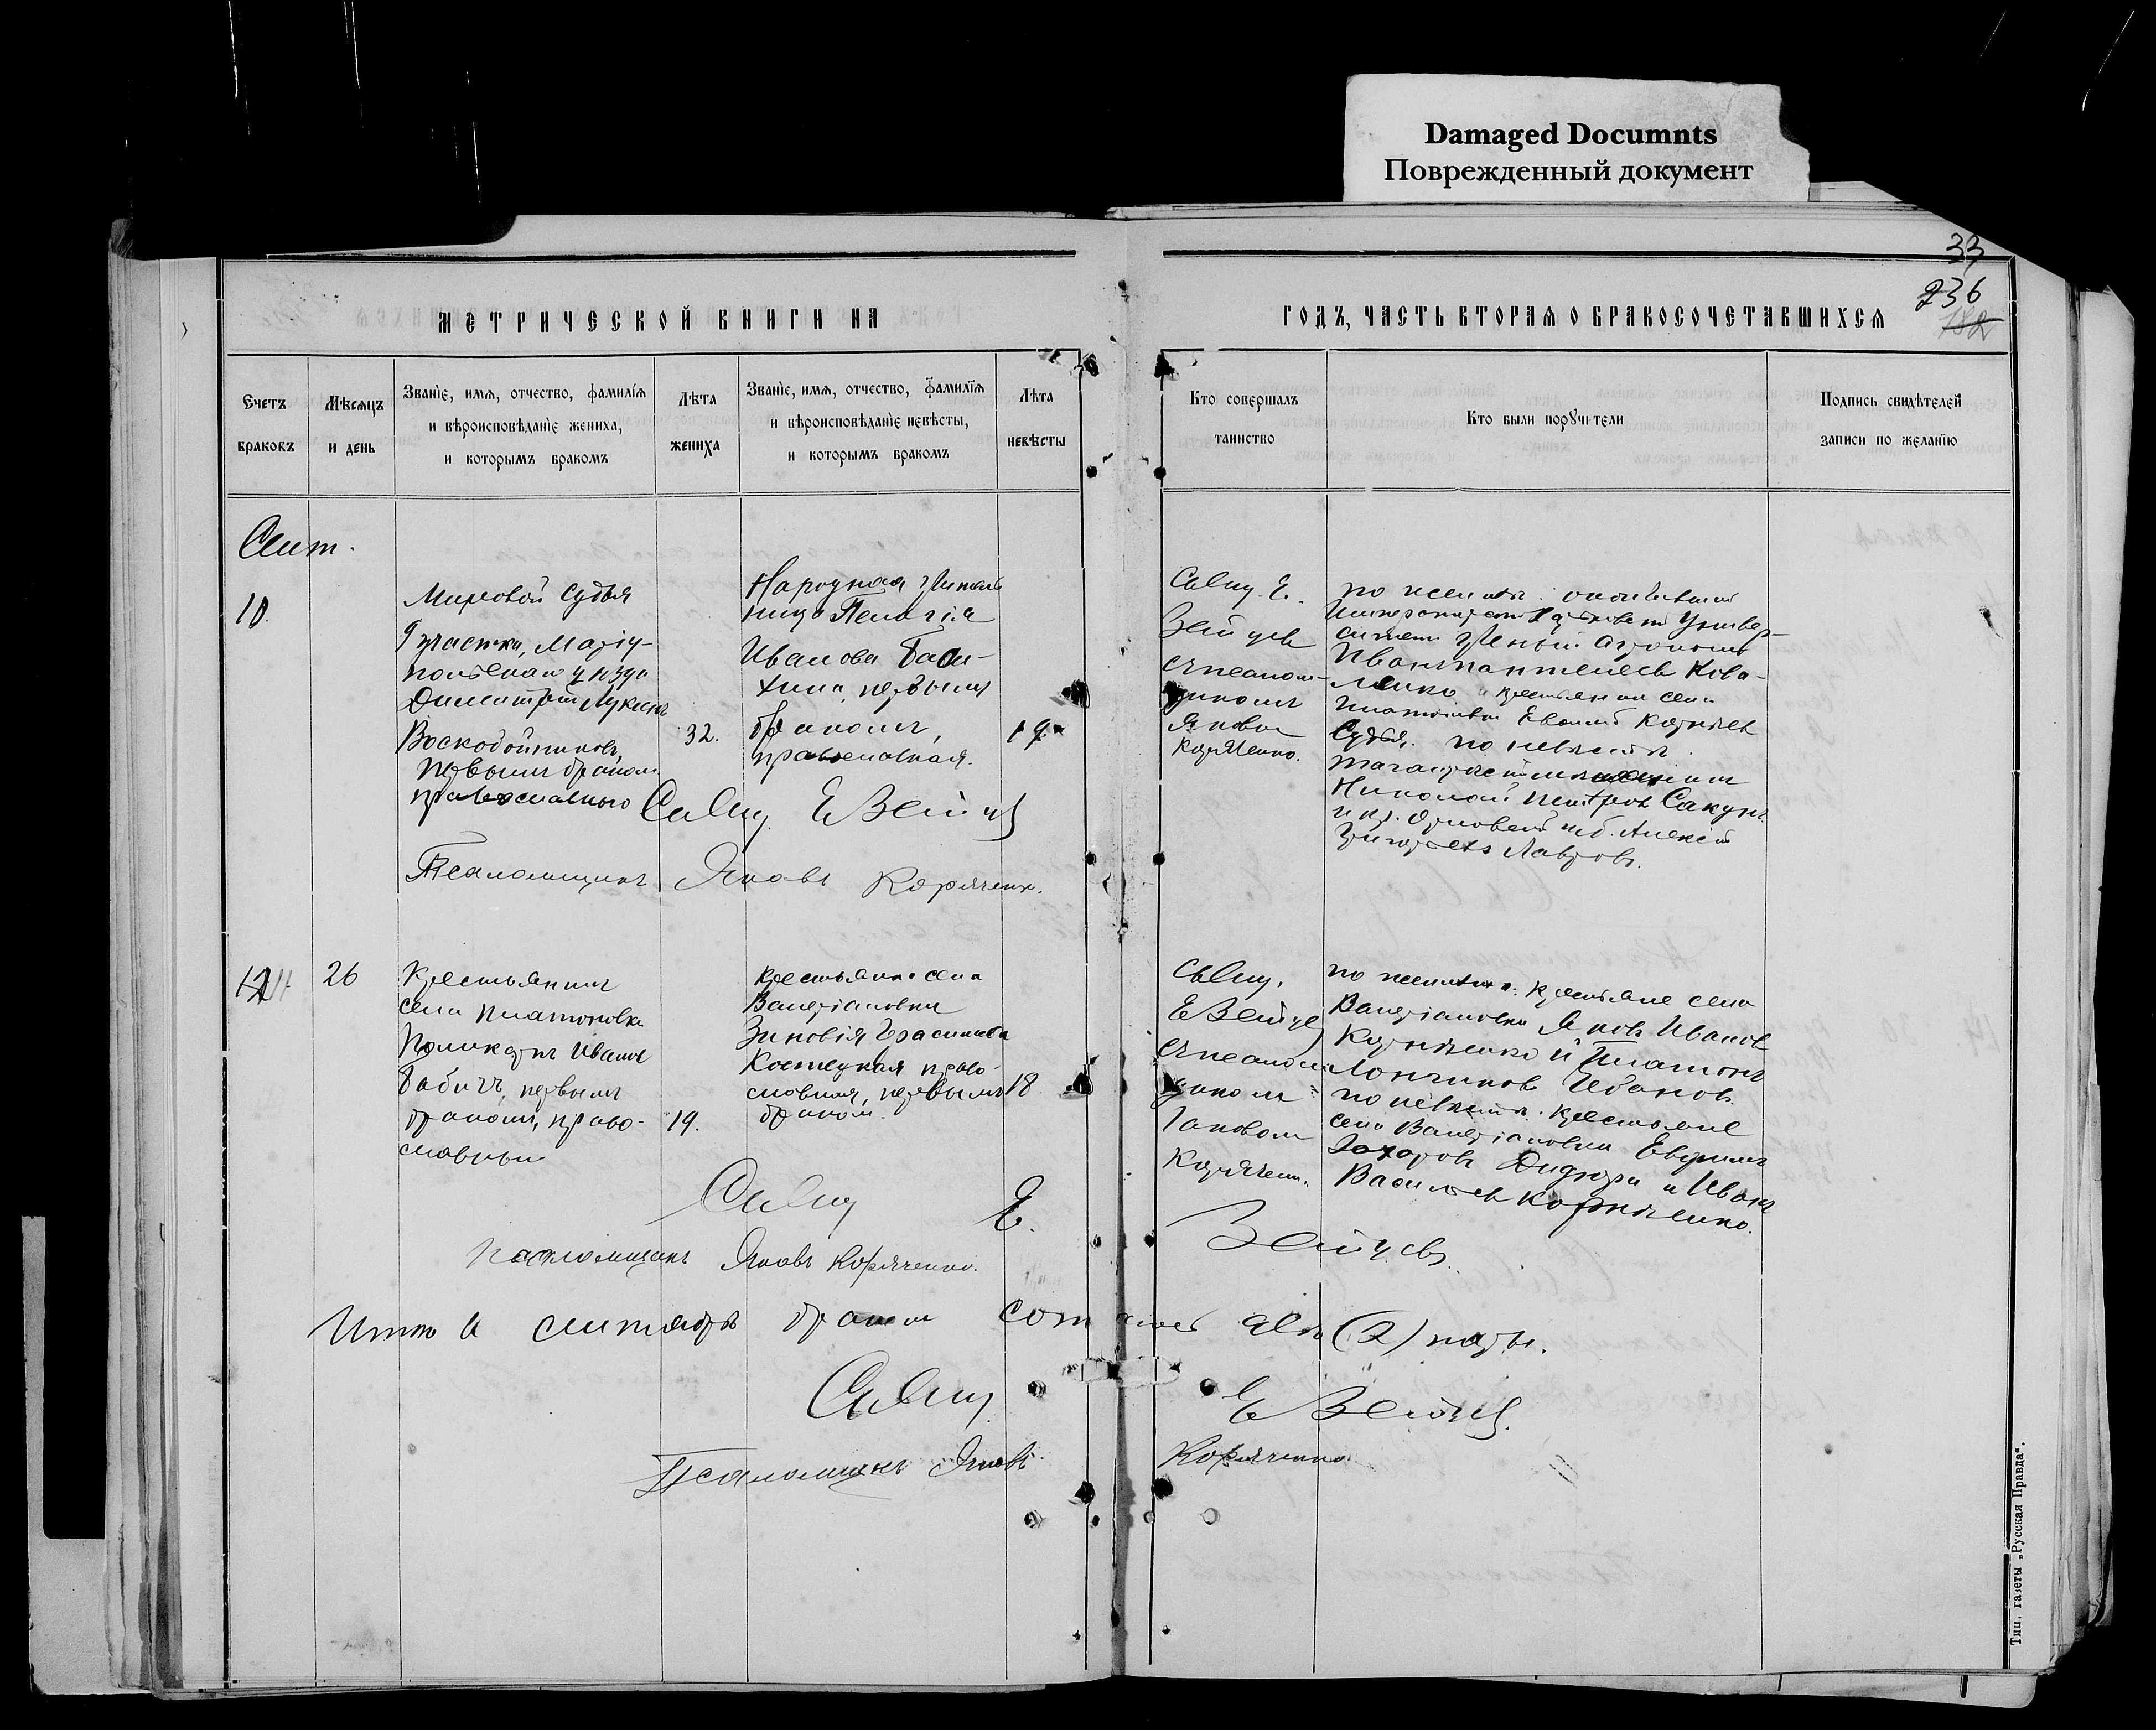 Damaged Documnts
Поврежденный документ
33
236
182
МЕТРИЧЕСКОЙ КНИГИ НА
ГОДЪ, ЧАСТЬ ВТОРАЯ О БРАКОСОЧЕТАВШИХСЯ
Счетъ
браковъ
Мѣсяцъ
и день
Званіе, имя, отчество, фамилія
и вѣроисповѣданіе жениха,
и которымъ бракомъ
Лѣта
жениха
Званіе, имя, отчество, фамилія
и вѣроисповѣданіе невѣсты,
и которымъ бракомъ
Лѣта
невѣсты
Кто совершалъ
таинство
Кто были поручители
Подпись свидѣтелей
записи по желанію
Сент.
10.
Мировой Судья
9 участка, Маріу-
польскаго уѣзда
Димитрій Лукинъ
Воскобойниковъ,
первымъ бракомъ
православнаго
32.
Народная учитель
ница Пелагія
Иванова
первымъ
бракомъ,
православная.
19.
Свящ. Е.
Зейцевъ
съ псалом-
щикомъ
Яковом
Коряченко.
по женихѣ: окончившій
Университетъ
ученый агрономъ
Иванъ Пантелеевъ Кова-
ленко и крестьянинъ села
Платоновки Евгеній Корніевъ
Судья, по невѣстѣ:
Николай Петровъ Сакунъ
Алексѣй
Григорьевъ Лавровъ.
Свящ. Е Зейцев
Псаломщикъ Яковъ Коряченко.
26
Крестьянинъ
села Платоновки
Поликарпъ Ивановъ
Бабичъ, первымъ
бракомъ, право-
славный
19.
Крестьянка села
Валеріановки
Зиновія Герасимова
Костецкая право-
славная, первымъ
бракомъ.
18
Свящ.
Е Зейцев
съ псалом
щиком
Іаковом
Коряченк.
по женихѣ: крестьяне села
Валеріановки Яковъ Ивановъ
Корніенко и Платонъ
Лонгиновъ Чебановъ
по невѣстѣ: крестьяне
села Валеріановки Евфимъ
Захаровъ Дидюра и Иванъ
Васильевъ Корніенко.
Свящ Е. Зейцевъ.
Псаломщикъ Яковъ Коряченко.
Итого въ сентябрѣ браком сочталось двѣ (2) пары.
Свящ Е Зейцев.
Псаломщикъ Яковъ Коряченко
Тип. газеты „Русская Правда“.